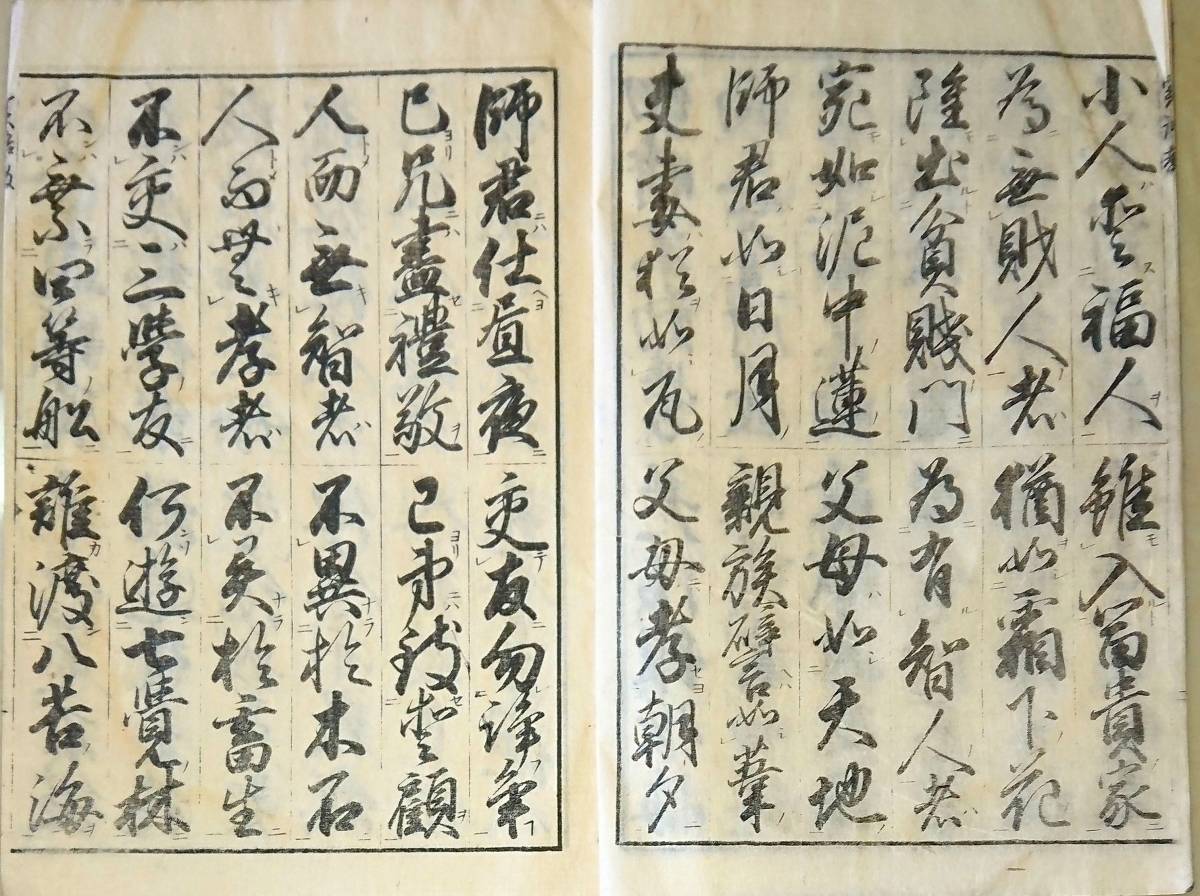 小人愛福人　雖入富貴家
為無財人者　猶如霜下花
雖出貧賤門　為有智人者
宛如泥中蓮　父母如天地
師君如日月　親族譬如葦
夫妻猶如瓦　父母孝朝夕
師君仕昼夜　交友勿諍争
己兄盡禮敬　己弟致愛顧
人而無智者　不異於木石
人而無孝者　不異於畜生
不交三學友　何遊七覺林
不乗四等舩　誰渡八苦海